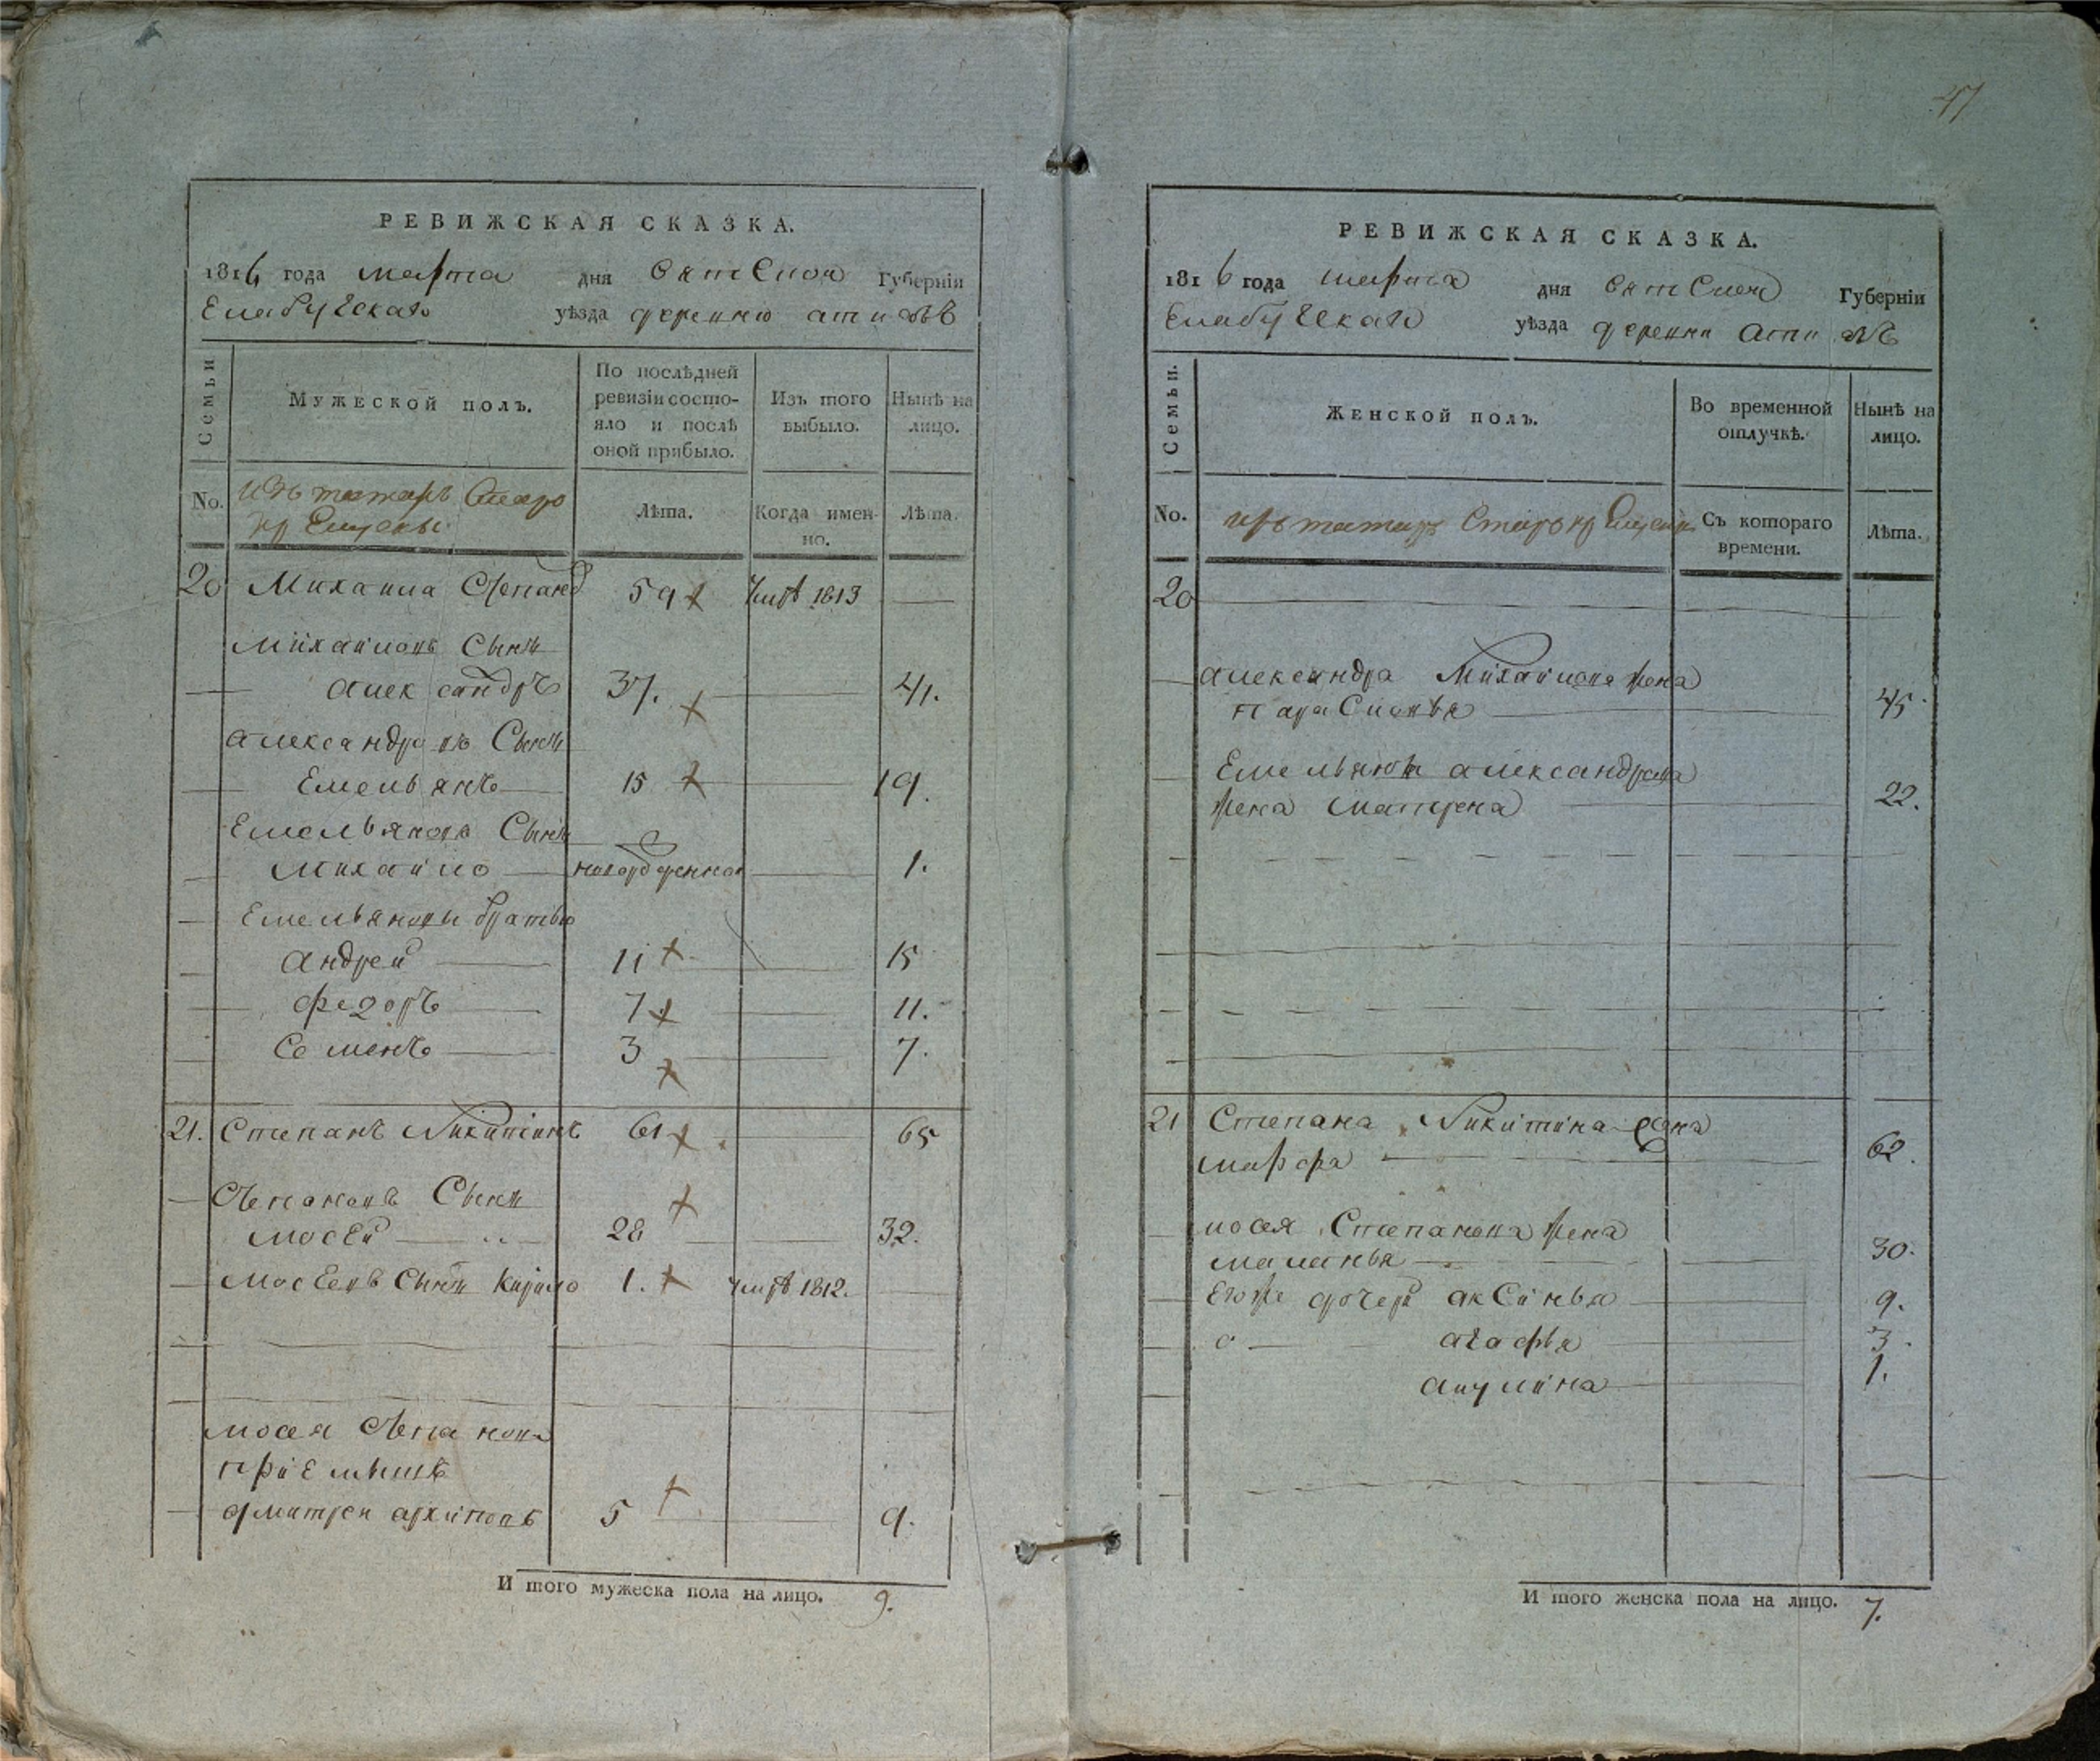 47
РЕВИЖСКАЯ СКАЗКА.
1816 года марта дня Вятской Губерніи
Елабугскаго уѣзда деревню атиазѣ
Семьи
Мужеской полъ.
По послѣдней ревизіи состо-
яло и послѣ оной прибыло.
Изъ того выбыло.
Нынѣ на лицо.
No.
изъ татаръ Старо
кр ещены
Лѣта.
Когда имен-
но.
Лѣта.
20 Михаила Степановъ 59 умре 1813
Михайловъ Сынъ
александръ 37. 41.
александровъ Сынъ
Емельянъ 15 19.
Емельяновъ Сынъ
Михайло новорожденной 1.
Емельяновы братья
андрей 11 15
федоръ 7 11.
Семенъ 3 7.
21. Степанъ Никитинъ 61 65
Степановъ Сынъ
мосей 28 32.
мосеевъ Сынъ Кирило 1. умре 1812.
мосея Степанова
пріемышъ
дмитреи архиповъ 5 9.
И того мужеска пола на лицо. 9.
РЕВИЖСКАЯ СКАЗКА.
1816 года марта дня Вятской Губерніи
Елабугскаго уѣзда деревни
Семьи.
Женской полъ.
Во временной
отлучкѣ.
Нынѣ на
лицо.
No.
изъ татаръ Старокрещенъ
Съ котораго
времени.
Лѣта.
20
александра Михайлова жена
парасковья 45
Емельяна александрова
жена матрена 22.
21 Степана Никитина жена
марфа 62.
мосея Степанова жена
маланья 30.
Егоже дочери аксинья 9.
агафья 3.
акулина 1.
И того женска пола на лицо. 7.